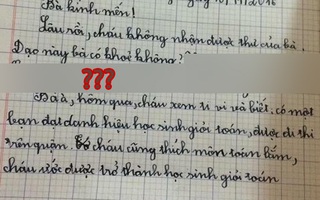 Bà kính mến!
Lâu rồi, cháu không nhận được thư của bà.
Dạo này bà có khoẻ không?
???
Bà à, hôm qua, cháu xem ti vi và biết, có một
bạn đạt danh hiệu học sinh giỏi toán, được đi thi
trên quận. cháu cũng thích môn toán lắm,
cháu ước được trở thành học sinh giỏi toán